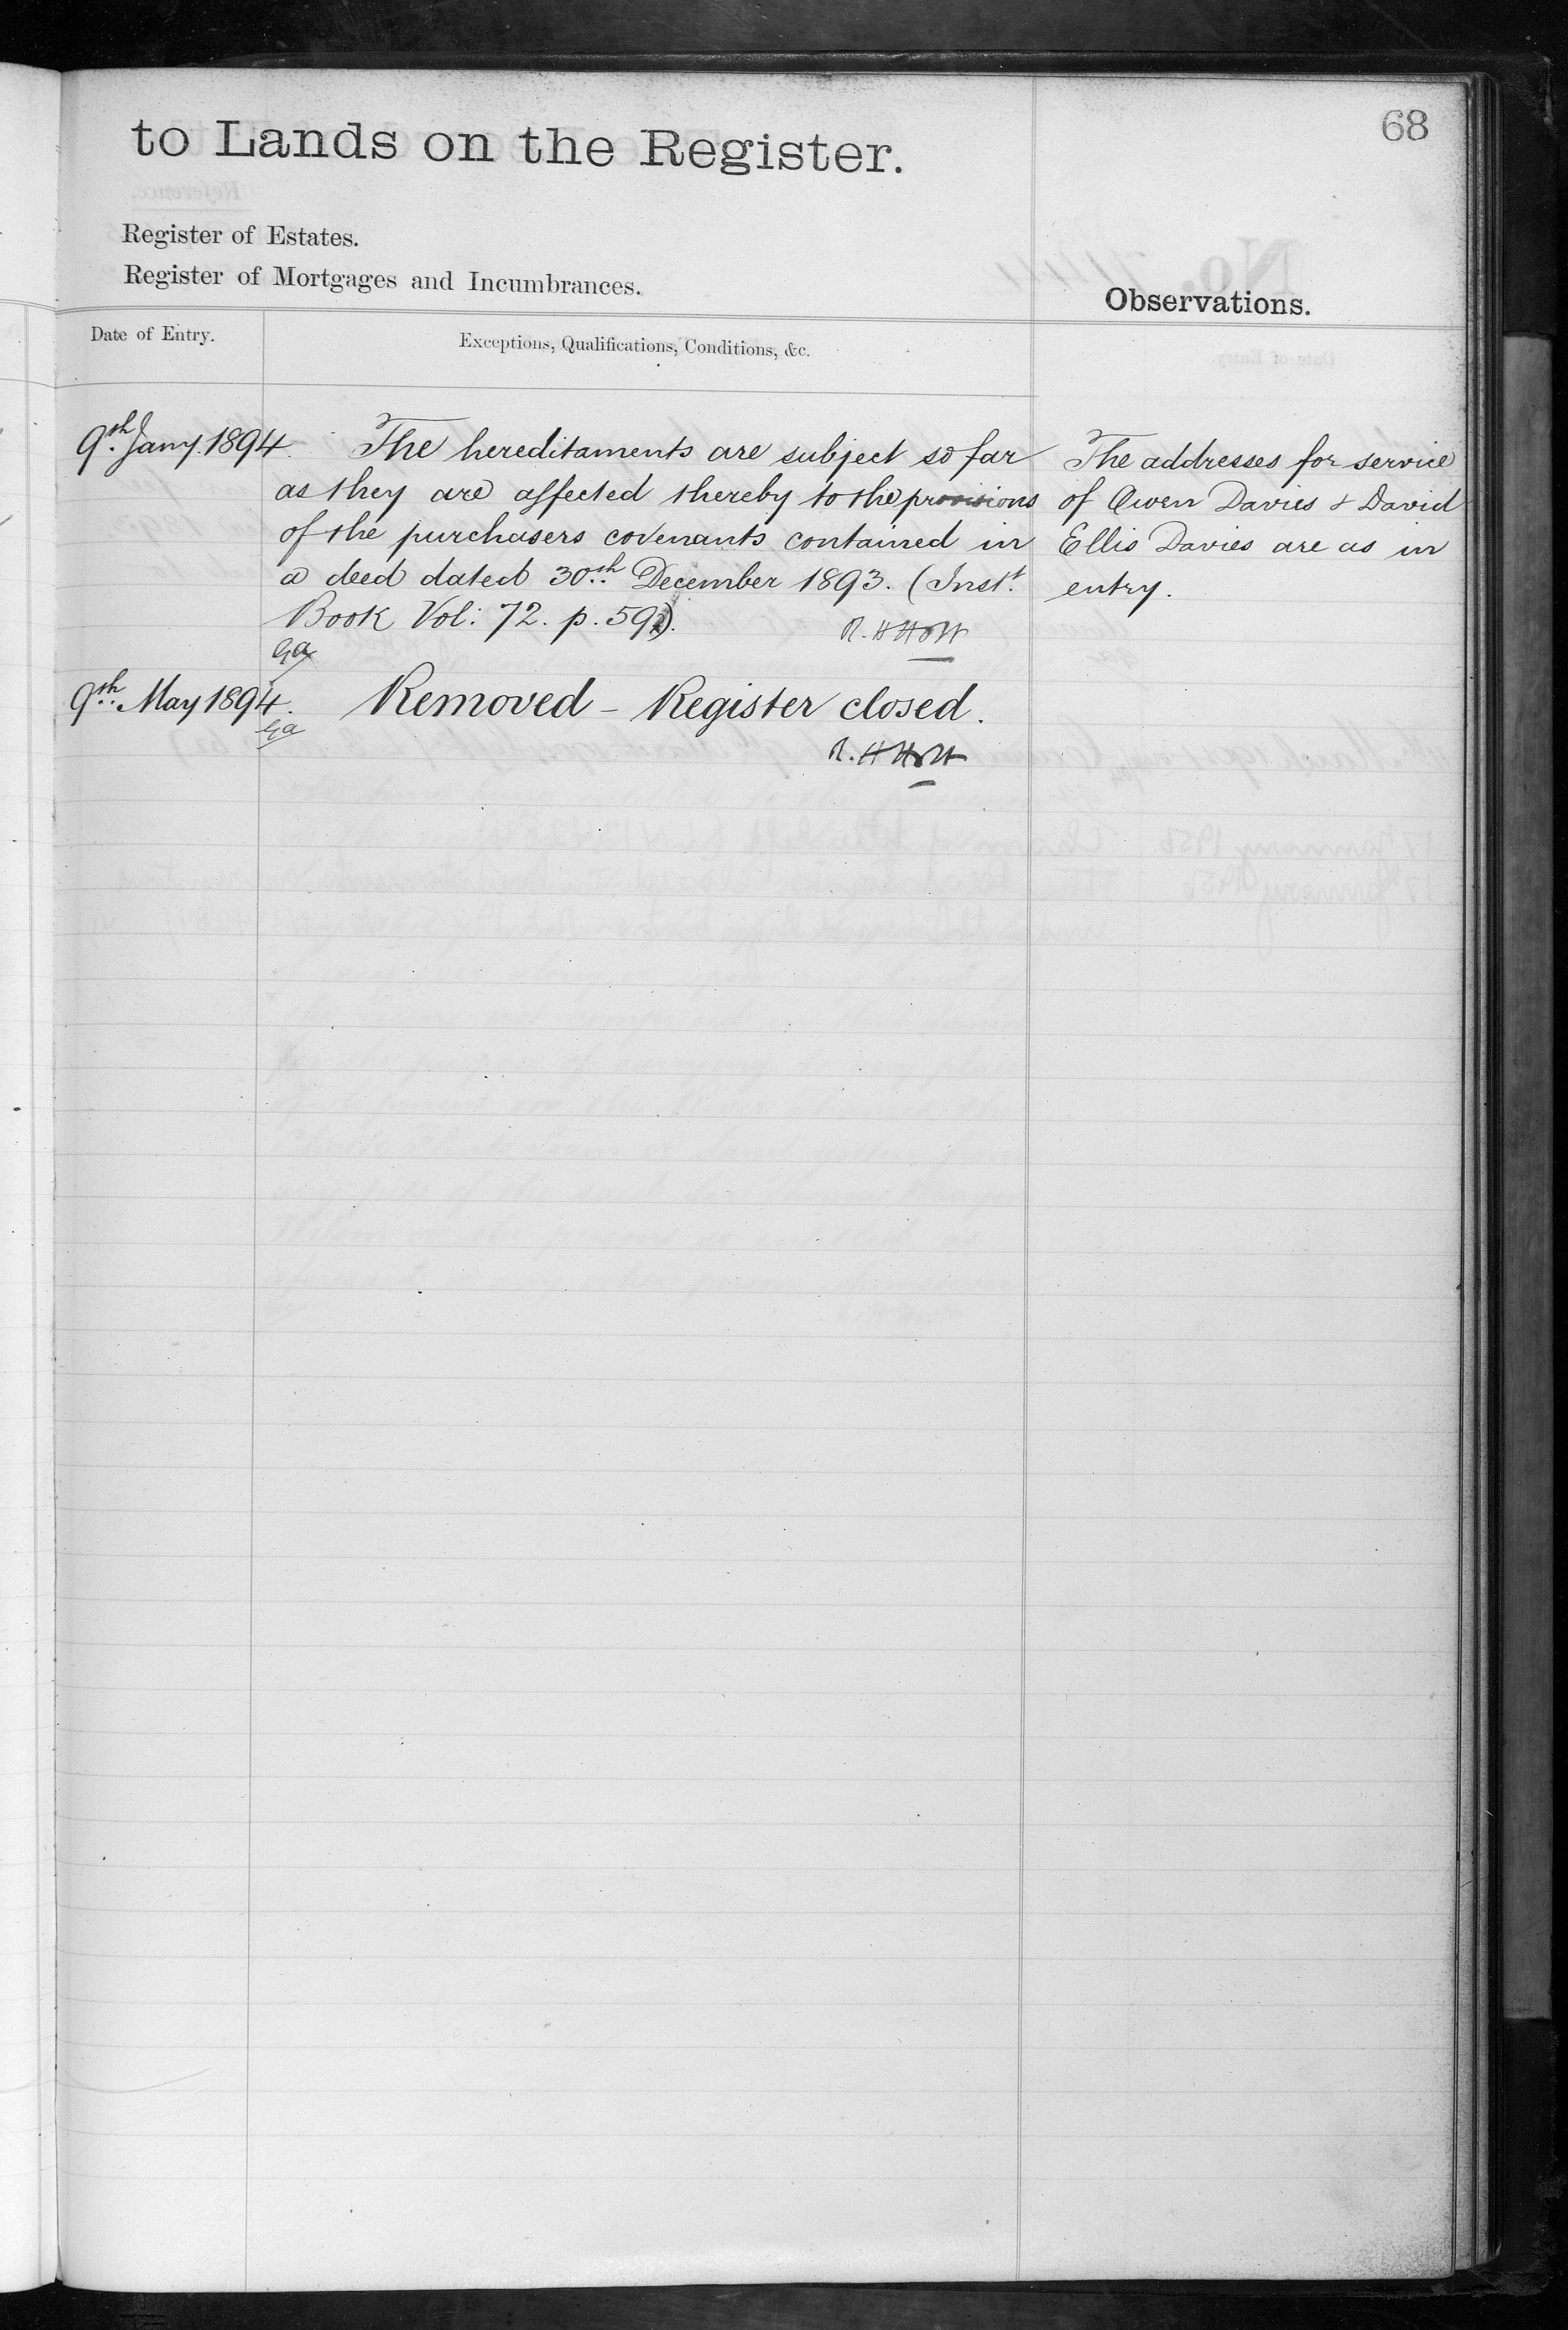 68
to Lands on the Register.
Register of Estates.
Register of Mortgages and Incumbrances.
Observations.
Date of Entry.
Exceptions, Qualifications, Conditions, &c.
9th Jany. 1894. The hereditaments are subject so far
as they are affected thereby to the provisions
of the purchasers covenants contained in
a deed dated 30th December 1893. (Inst.
Book Vol: 72. p. 59).
R. H Holt
Ga
The addresses for service
of Owen Davies & David
Ellis Davies are as in
entry.
9th May 1894. Removed - Register closed.
Ga
R. H Holt